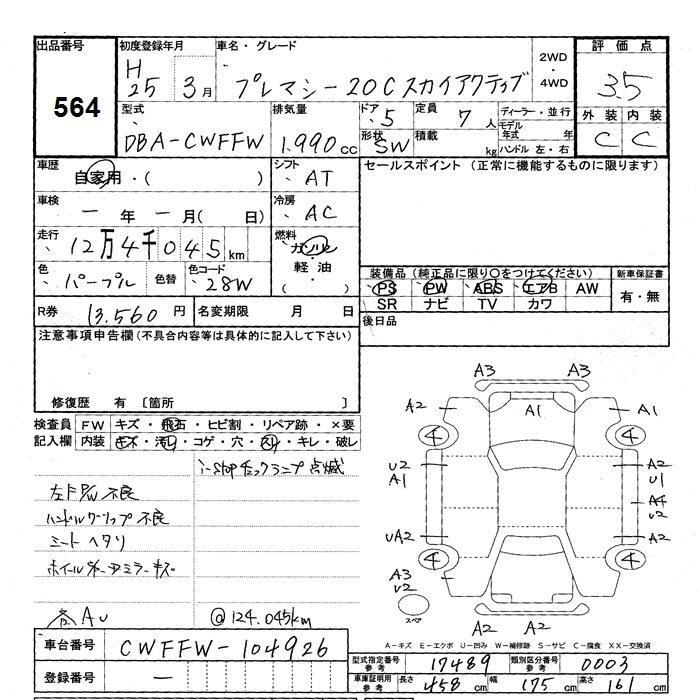 出品番号
564
初度登録年月
H 25 3月
車名・グレード
プレマシー20Cスカイアクティブ
2WD
・
4WD
評価点
3.5
型式
DBA-CWFFW
排気量
1.990cc
ドア
5
形状
SW
定員
7人
積載
kg
ディーラー・並行
モデル年式 年
ハンドル 左・右
外装 内装
C C
車歴
自家用・( )
シフト
AT
セールスポイント (正常に機能するものに限ります)
車検
一年 一月( 日)
冷房
AC
走行
12万4千045km
燃料
ガソリン
軽油
( )
色
パープル
色替
色コード
28W
装備品(純正品に限り○をつけてください)
新車保証書
PS PW ABS エアB AW
有・無
SR ナビ TV カワ
R券
13.560円
名変期限
月 日
後日品
注意事項申告欄(不具合内容等は具体的に記入して下さい)
修復歴 有 〔箇所
検査員記入欄
FW キズ・飛石・ヒビ割・リペア跡・×要
内装 キズ・汚レ・コゲ・穴・スレ・キレ・破レ
i-stopチェックランプ点滅
左F P/W 不良
ハンドルグリップ 不良
シートヘタリ
キズ
各AU
@124.045km
A3 A3
A2 A1 A1
4 4
U2 A2
A1 U1
A4
U2
UA2 A2
4 4
A3
U2
スペア
A2 A2
A2
車台番号
CWFFW-104926
登録番号
—
A-キズ E-エクボ U-凹み W-補修跡 S-サビ C-腐食 XX-交換済
型式指定番号
参考
17489
類別区分番号
参考
0003
車庫証明用
参考
長さ 458cm
幅 175cm
高さ 161cm